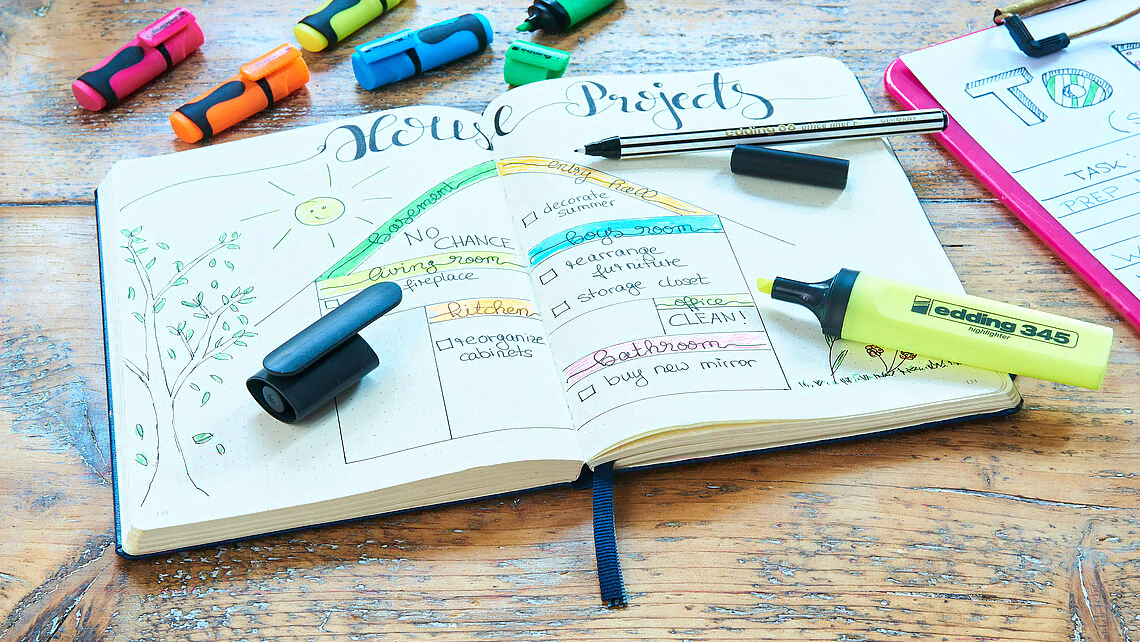 House Projects
basement
NO
CHANCE
living room
fireplace
kitchen
reorganize
cabinets
entry hall
decorate
summer
boys room
rearrange
furniture
storage closet
office
CLEAN!
bathroom
buy new mirror
131
edding
edding 345
highlighter
TO
TASK:
PREP